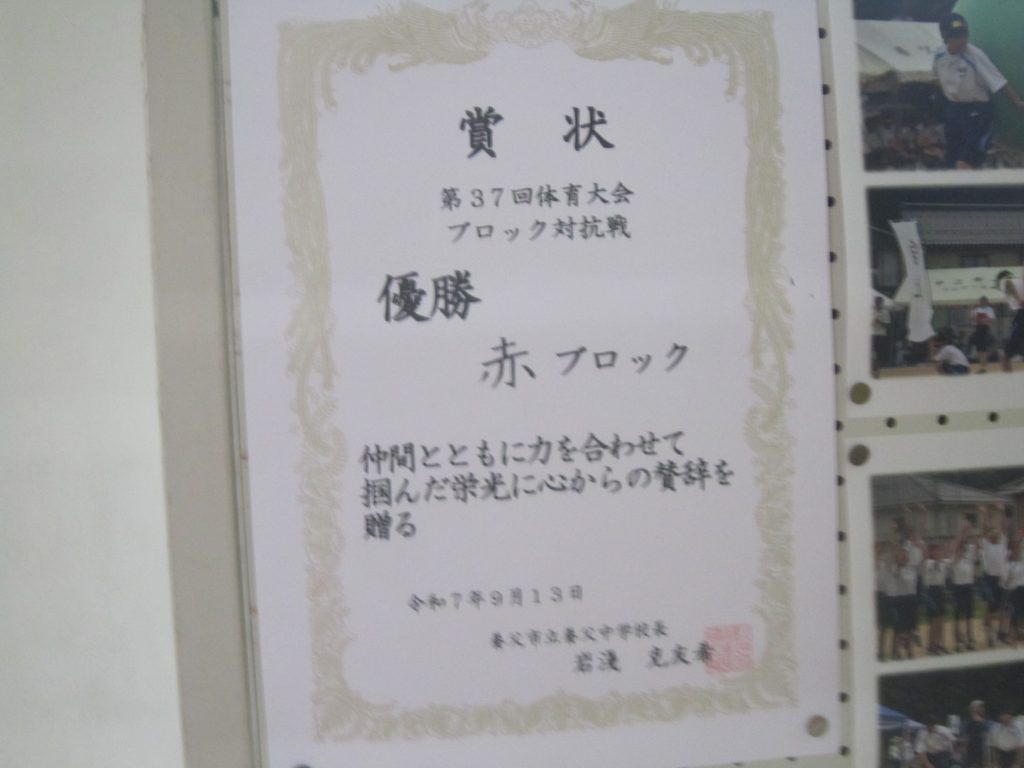 賞 状
第37回体育大会
ブロック対抗戦
優勝
赤 ブロック
仲間とともに力を合わせて
掴んだ栄光に心からの賛辞を
贈る
令和7年9月13日
養父市立養父中学校長
岩淺 克友希